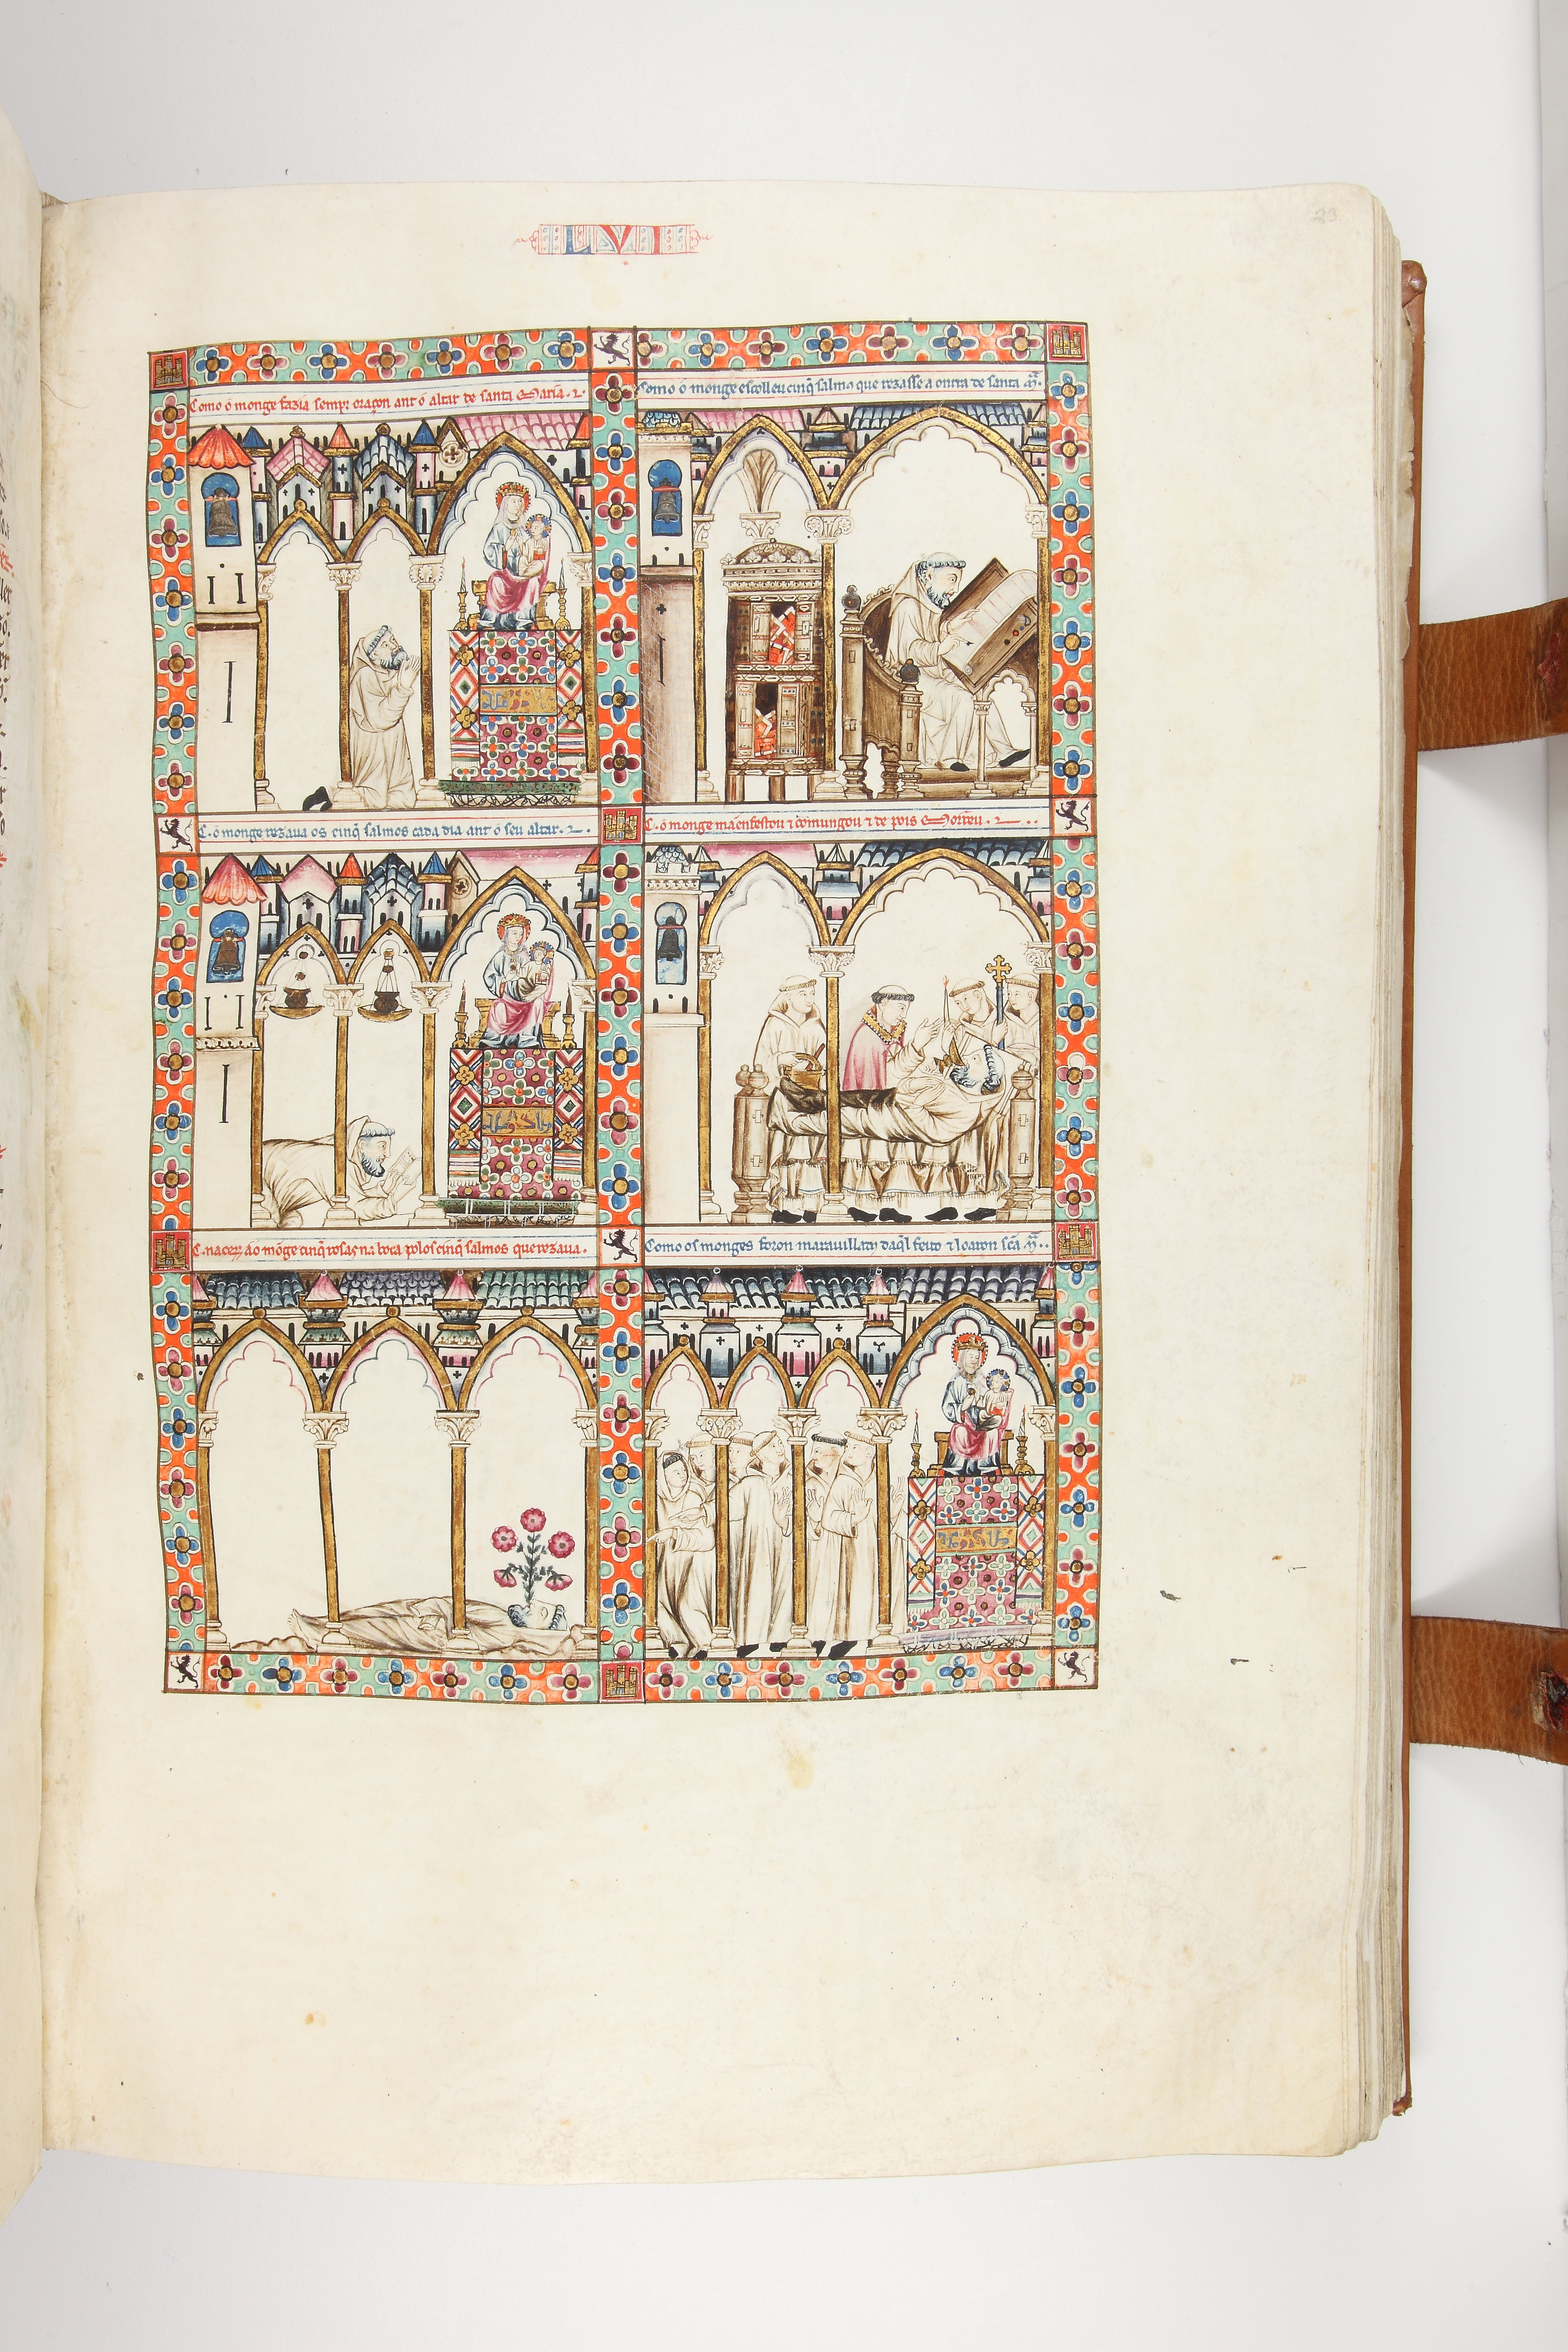 LVI
23.
Como o monge fazia sempr̃ oraçon ant o altar de santa Maria.
Como o monge escolleu cinq̃ salmos que rezasse a onrra de santa m̃.
C. o monge rezaua os cinq̃ salmos cada dia ant o seu altar.
C. o monge mãenfestou ⁊ comungou ⁊ de pois Morreu.
C. nacerõ ao mõge cinq̃ rosas na boca polos cinq̃ salmos que rezaua.
Como os monges foron marauillad daq̃l feito ⁊ loaron sc̃a m̃.